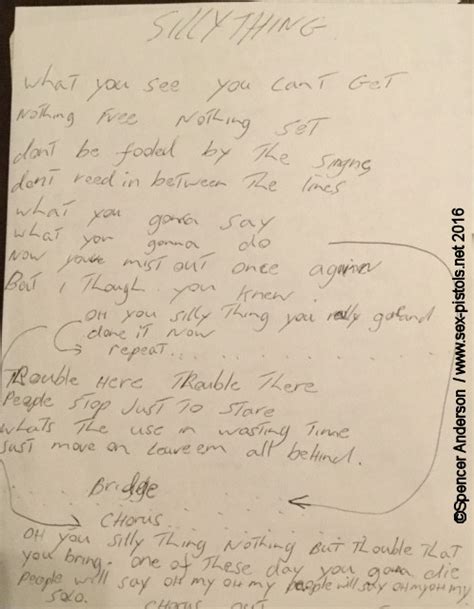 SILLY THING
what you see you can't Get
Nothing Free Nothing Set
dont be fooled by The signs
dont reed in between The lines
what you gonna say
what you gonna do
Now youve mist out once again
But i Though you knew
OH you silly Thing you really go and
done it Now
repeat...
Trouble Here Trouble There
People stop Just To stare
whats The use in wasting Time
Just move on Leave em all behind.
Bridge
CHORUS
OH you silly Thing Nothing But Trouble That
you bring. one of These day you gona die
people will say oh my oh my people will say oh my oh my
solo.
CHORUS OUT
©Spencer Anderson / www.sex-pistols.net 2016